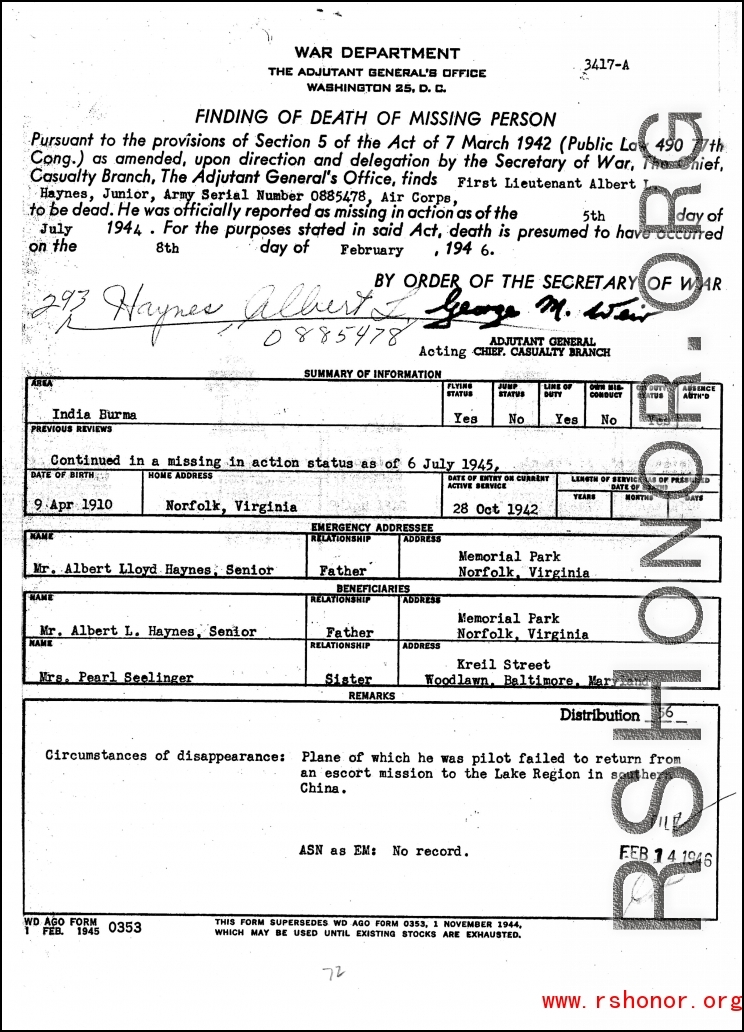 WAR DEPARTMENT
3417-A
THE ADJUTANT GENERAL'S OFFICE
WASHINGTON 25, D. C.
FINDING OF DEATH OF MISSING PERSON
Pursuant to the provisions of Section 5 of the Act of 7 March 1942 (Public Law 490 77th
Cong.) as amended, upon direction and delegation by the Secretary of War, The Chief,
Casualty Branch, The Adjutant General's Office, finds First Lieutenant Albert L.
Haynes, Junior, Army Serial Number 0885478, Air Corps,
to be dead. He was officially reported as missing in action as of the 5th day of
July 1944. For the purposes stated in said Act, death is presumed to have occurred
on the 8th day of February, 1946.
BY ORDER OF THE SECRETARY OF WAR
293 Haynes, Albert L. George M. Weir
0885478
ADJUTANT GENERAL
Acting CHIEF. CASUALTY BRANCH
SUMMARY OF INFORMATION
AREA FLYING STATUS JUMP STATUS LINE OF DUTY OWN MIS-CONDUCT ABSENCE AUTH'D
India Burma Yes No Yes No Yes
PREVIOUS REVIEWS
Continued in a missing in action status as of 6 July 1945,
DATE OF BIRTH HOME ADDRESS DATE OF ENTRY ON CURRENT ACTIVE SERVICE LENGTH OF SERVICE AS OF PRESUMED DATE OF DEATH
YEARS MONTHS DAYS
9 Apr 1910 Norfolk, Virginia 28 Oct 1942
EMERGENCY ADDRESSEE
NAME RELATIONSHIP ADDRESS
Memorial Park
Mr. Albert Lloyd Haynes, Senior Father Norfolk, Virginia
BENEFICIARIES
NAME RELATIONSHIP ADDRESS
Memorial Park
Mr. Albert L. Haynes, Senior Father Norfolk, Virginia
NAME RELATIONSHIP ADDRESS
Kreil Street
Mrs. Pearl Seelinger Sister Woodlawn, Baltimore, Maryland
REMARKS
Distribution 56
Circumstances of disappearance: Plane of which he was pilot failed to return from
an escort mission to the Lake Region in southern
China.
FILE
ASN as EM: No record.
FEB 14 1946
WD AGO FORM 0353
1 FEB. 1945
THIS FORM SUPERSEDES WD AGO FORM 0353, 1 NOVEMBER 1944,
WHICH MAY BE USED UNTIL EXISTING STOCKS ARE EXHAUSTED.
72
RSHONOR.ORG
www.rshonor.org